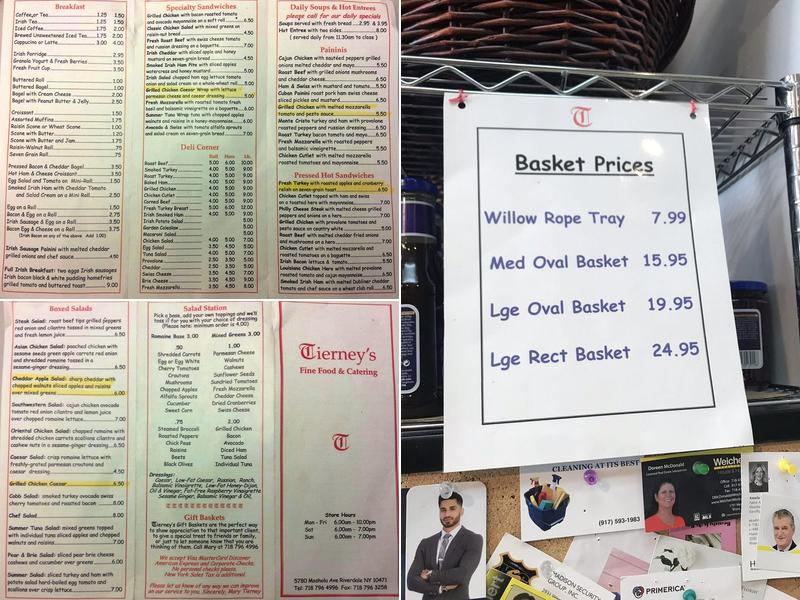 Breakfast
Coffee or Tea 1.25 1.50
Irish Tea 1.25 1.50
Iced Coffee 1.75 2.00
Brewed Unsweetened Iced Tea 1.75 2.00
Cappucino or Latte 3.00 4.00
Irish Porridge 2.95
Granola Yogurt & Fresh Berries 3.50
Fresh Fruit Cup 3.50
Buttered Roll 1.00
Buttered Bagel 1.00
Bagel with Cream Cheese 2.00
Bagel with Peanut Butter & Jelly 2.50
Croissant 1.50
Assorted Muffins 1.75
Raisin Scone or Wheat Scone 1.00
Scone with Butter 1.20
Scone with Butter and Jam 1.75
Raisin-Walnut Roll .75
Seven Grain Roll .75
Pressed Bacon & Cheddar Bagel 3.50
Hot Ham & Cheese Croissant 3.50
Egg Salad and Tomato on Mini Roll 1.50
Smoked Irish Ham with Cheddar Tomato
and Salad Cream on a Mini Roll 2.50
Egg on a Roll 1.50
Bacon & Egg on a Roll 2.75
Irish Sausage & Egg on a Roll 3.00
Bacon Egg & Cheese on a Roll 3.75
(Irish Bacon on any of the above Add 1.00)
Irish Sausage Panini with melted cheddar
grilled onions and chef sauce 4.50
Full Irish Breakfast: two eggs Irish sausages
Irish bacon black & white pudding homefries
grilled tomato and buttered toast 9.00
Specialty Sandwiches
Grilled Chicken with bacon roasted tomato
and avocado mayonnaise on a soft roll 6.50
Classic Chicken Salad with mixed greens on
raisin-nut bread 4.50
Fresh Turkey with swiss cheese tomato
and russian dressing on a baguette 7.00
Irish Cheddar with sliced apple and honey
mustard on seven-grain bread 4.50
Smoked Irish Ham Pita with sliced apples
watercress and honey mustard 5.00
Irish Salad chopped ham egg lettuce tomato
onion and salad cream on a whole-wheat roll 5.00
Grilled Chicken Caesar Wrap with lettuce
parmesan cheese and caesar dressing 5.00
Fresh Mozzarella with roasted tomato fresh
basil and balsamic vinaigrette on a baguette 6.00
Summer Tuna Wrap tuna with chopped apples
walnuts and raisins in a honey-mayonnaise 6.00
Avocado & Swiss with tomato alfalfa sprouts
and salad cream on seven-grain bread 7.00
Deli Corner
Roll Hero Lb.
Roast Beef 5.00 6.00 10.00
Smoked Turkey 4.00 5.00 9.00
Roast Turkey 4.00 5.00 9.00
Ham 4.00 5.00 9.00
Grilled Chicken 4.00 5.00 9.00
Chicken Cutlet 4.00 5.00 9.00
Corned Beef 4.00 5.00 9.00
Fresh Turkey Breast 5.00 6.00 12.00
Irish Smoked Ham 4.00 5.00 9.00
Irish Potato Salad
Garden Coleslaw 5.00
Macaroni Salad 5.00
Chicken Salad 4.00 5.00 7.00
Egg Salad 3.50 4.50 5.00
Tuna Salad 4.00 5.00 7.00
Provolone 2.50 3.50 7.00
Cheddar 2.50 3.50 7.00
Swiss Cheese 3.50 4.50 9.00
Brie Cheese 3.50 4.50 9.00
Fresh Mozzarella 3.50 4.50 8.00
Daily Soups & Hot Entrees
please call for our daily specials
Soups served with fresh bread 2.95 & 3.95
Hot Entree with two sides 8.00
( served daily from 11.30am to close )
Paininis
Cajun Chicken with sautéed peppers grilled
onions melted cheddar and mayo 5.50
Roast Beef with grilled onions mushrooms
and cheddar cheese 6.50
Ham & Swiss with mustard and tomato 5.50
Cuban Painini roast pork ham swiss cheese
sliced pickles and mustard 6.50
Grilled Chicken with melted mozzarella
tomato and pesto sauce 5.50
Monte Cristo turkey and ham with provolone
roasted peppers and russian dressing 6.50
Roast Turkey bacon tomato and mayo 5.50
Fresh Mozzarella with roasted peppers
and balsamic vinaigrette 5.50
Chicken Cutlet with melted mozzarella
roasted tomatoes and mayonnaise 5.50
Pressed Hot Sandwiches
Fresh Turkey with roasted apples and cranberry
relish on seven-grain toast 6.50
Chicken Cutlet topped with ham and swiss
on a toasted hero with mayonnaise 7.00
Philly Cheese Steak with melted cheese grilled
peppers and onions on a hero 7.00
Grilled Chicken with provolone tomatoes and
pesto sauce on country white 5.00
Roast Beef with melted cheddar fried onions
and mushrooms on a hero 7.00
Chicken Cutlet with melted mozzarella and
roasted tomatoes on a baguette 6.50
Irish Bacon lettuce & tomato 5.50
Louisiana Chicken Hero with melted provolone
roasted tomato and cajun mayonnaise 6.50
Smoked Irish Ham with melted Dubliner cheddar
tomato and chef sauce on a wheat club roll 6.50
Boxed Salads
Steak Salad: roast beef tips grilled peppers
red onion and cilantro tossed in mixed greens
and fresh lemon juice 6.50
Asian Chicken Salad: poached chicken with
sesame seeds green apple carrots red onion
and shredded romaine tossed in a
sesame-ginger dressing 6.50
Cheddar Apple Salad: sharp cheddar with
chopped walnuts sliced apples and raisins
over mixed greens 6.00
Southwestern Salad: cajun chicken avocado
tomato red onion cilantro and lemon juice
over chopped romaine lettuce 7.00
Oriental Chicken Salad: chopped romaine with
shredded chicken carrots scallions cilantro and
cashew nuts in a sesame-ginger dressing 6.50
Caesar Salad: crisp romaine lettuce with
freshly-grated parmesan croutons and
caesar dressing 4.50
Grilled Chicken Caesar 6.50
Cobb Salad: smoked turkey avocado swiss
cherry tomatoes and roasted bacon 8.50
Chef Salad 8.50
Summer Tuna Salad: mixed greens topped
with individual tuna sliced apples and chopped
walnuts and raisins 7.00
Pear & Brie Salad: sliced pear brie cheese
cashews and cucumber over greens 6.00
Summer Salad: sliced turkey and ham with
potato salad hard-boiled egg tomato and
scallions over crisp lettuce 7.00
Salad Station
Pick a base, add your own toppings and we'll
toss it for you with your choice of dressing
(Please note: minimum order is 4.00)
Romaine Base 3.00 Mixed Greens 3.00
.50 1.00
Shredded Carrots Parmesan Cheese
Egg or Egg White Walnuts
Cherry Tomatoes Cashews
Croutons Sunflower Seeds
Mushrooms Sundried Tomatoes
Chopped Apples Fresh Mozzarella
Alfalfa Sprouts Cheddar Cheese
Cucumber Dried Cranberries
Sweet Corn Swiss Cheese
.75 2.00
Steamed Broccoli Grilled Chicken
Roasted Peppers Bacon
Chick Peas Avocado
Raisins Diced Ham
Beets Tuna Salad
Black Olives Individual Tuna
Dressings:
Caesar, Low-Fat Caesar, Russian, Ranch,
Balsamic Vinaigrette, Low-Fat Honey-Dijon,
Oil & Vinegar, Fat-Free Raspberry Vinaigrette
Sesame Ginger, Balsamic Vinegar & Oil
Gift Baskets
Tierney's Gift Baskets are the perfect way
to show appreciation to that important client,
to give a special treat to friends or family,
or just to let someone know that you are
thinking of them. Call Mary at 718 796 4996
We accept Visa MasterCard Discover
American Express and Corporate Checks.
No personal checks please.
New York Sales Tax is additional.
Please let us know of any way we can improve
on our service to you. Sincerely, Mary Tierney
Tierney's
Fine Food & Catering
T
Store Hours
Mon - Fri 6.00am - 10.00pm
Sat 6.00am - 7.00pm
Sun 6.00am - 7.00pm
5780 Mosholu Ave Riverdale NY 10471
Tel: 718 796 4996 Fax: 718 796 3258
T
Basket Prices
Willow Rope Tray 7.99
Med Oval Basket 15.95
Lge Oval Basket 19.95
Lge Rect Basket 24.95
CLEANING AT ITS BEST
(917) 593-1983
Doreen McDonald
Weiche
MADISON SECURITY
GROUP, INC.
PRIMERICA